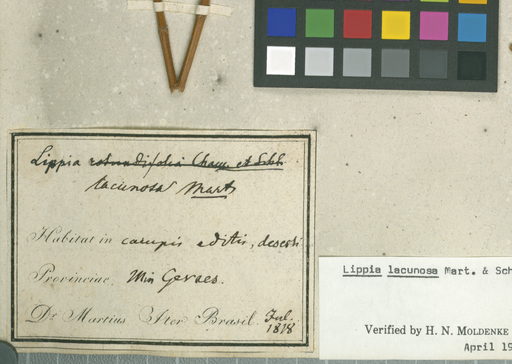 Lippia rotundifolia Cham. et Schl.
lacunosa Mart
Habitat in campis editis, desert
Provinciae, Min Geraes.
Dr Martius Iter Brasil. Jul.
1818
Lippia lacunosa Mart. & Sch
Verified by H. N. MOLDENKE
April 19